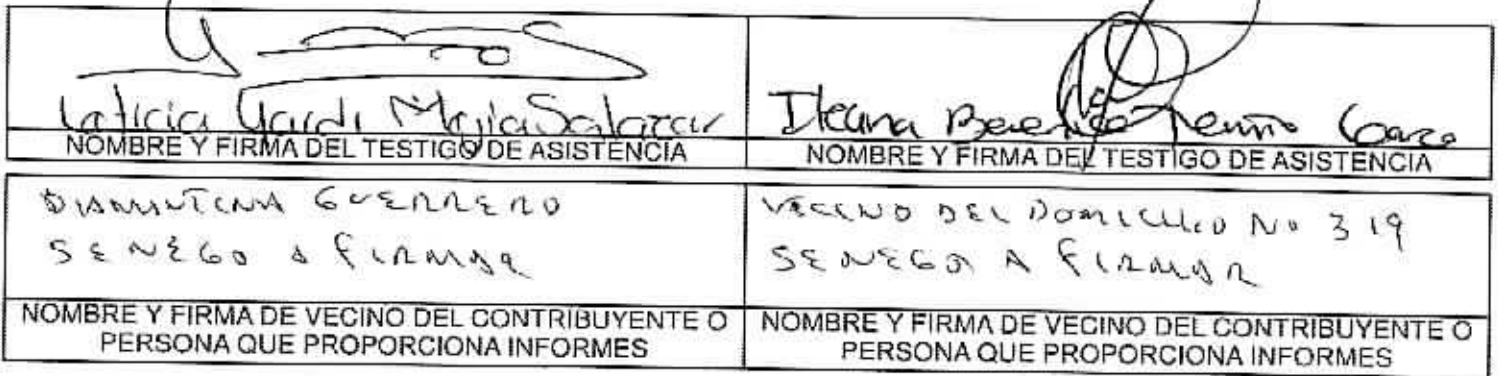 Leticia Yardi Mejia Salazar
Ileana Berenice Treviño Garza
NOMBRE Y FIRMA DEL TESTIGO DE ASISTENCIA
NOMBRE Y FIRMA DEL TESTIGO DE ASISTENCIA
DIAMANTINA GUERRERO
SE NEGO A FIRMAR
VECINO DEL DOMICILIO No 319
SE NEGO A FIRMAR
NOMBRE Y FIRMA DE VECINO DEL CONTRIBUYENTE O
PERSONA QUE PROPORCIONA INFORMES
NOMBRE Y FIRMA DE VECINO DEL CONTRIBUYENTE O
PERSONA QUE PROPORCIONA INFORMES